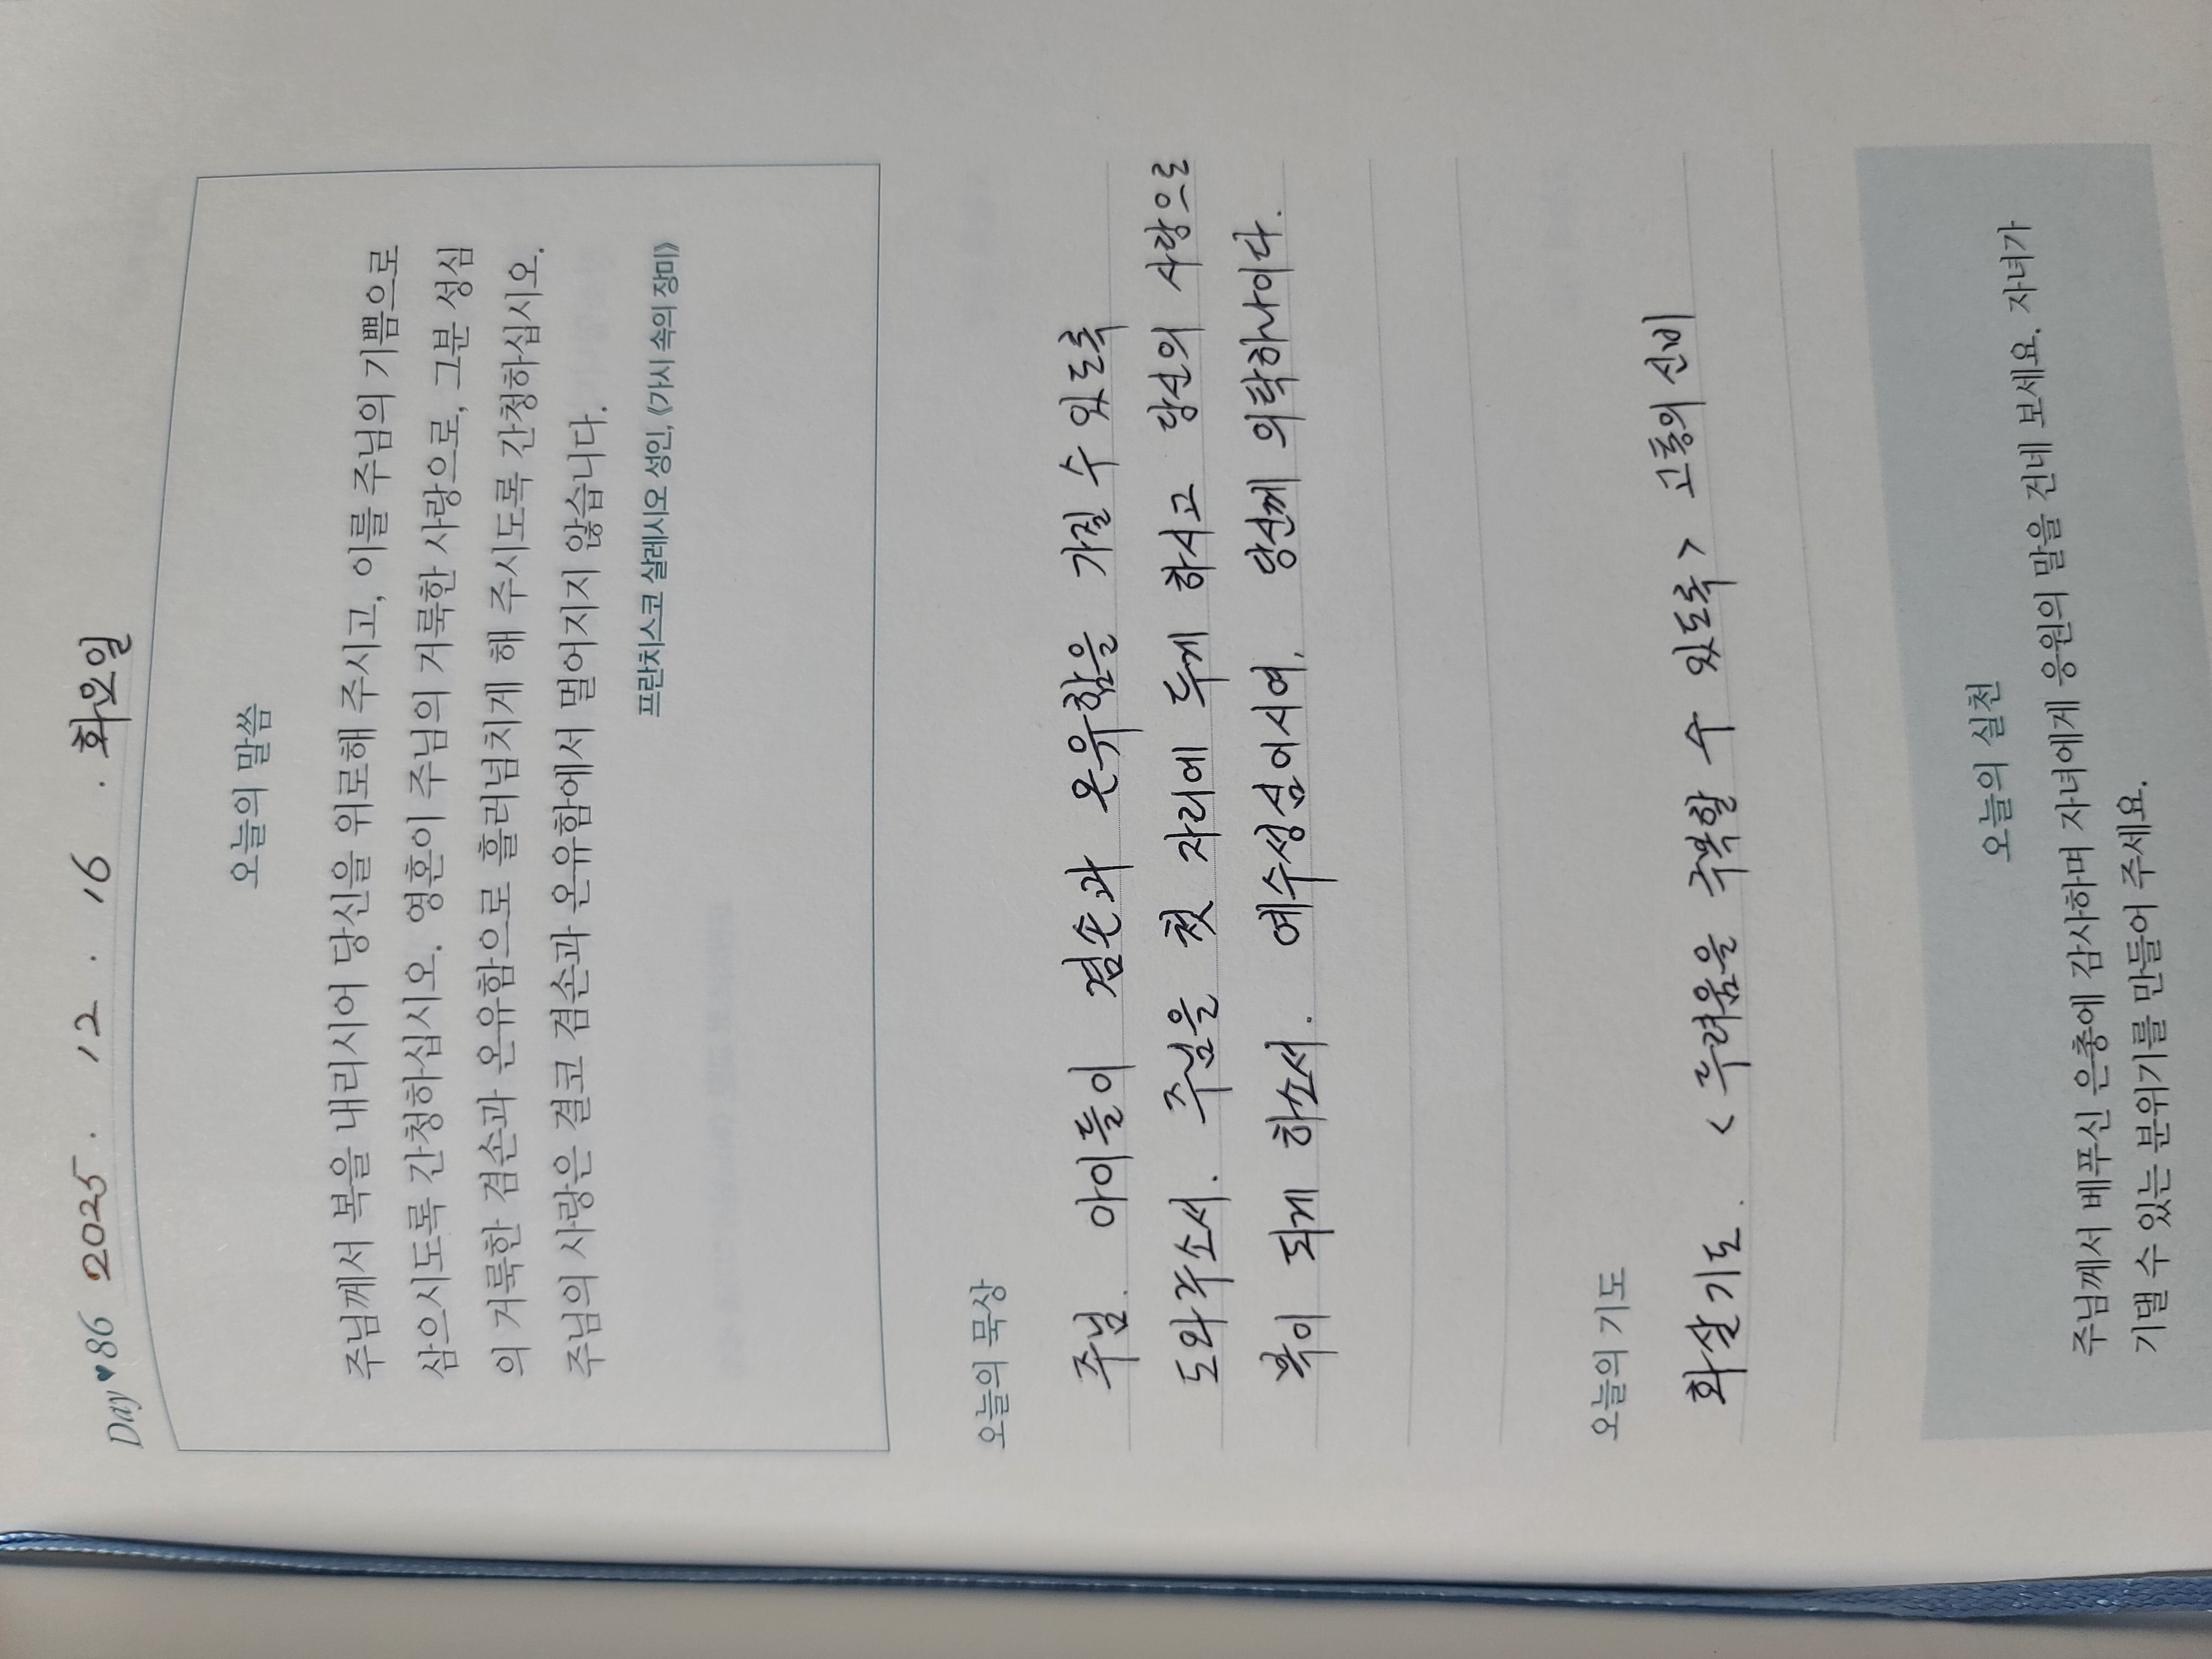 Day♥86 2025. 12. 16. 화요일
오늘의 말씀
주님께서 복을 내리시어 당신을 위로해 주시고, 이를 주님의 기쁨으로
삼으시도록 간청하십시오. 영혼이 주님의 거룩한 사랑으로, 그분 성심
의 거룩한 겸손과 온유함으로 흘러넘치게 해 주시도록 간청하십시오.
주님의 사랑은 결코 겸손과 온유함에서 멀어지지 않습니다.
프란치스코 살레시오 성인, 《가시 속의 장미》
오늘의 묵상
주님. 아이들이 겸손과 온유함을 가질 수 있도록
도와주소서. 주님을 첫 자리에 두게 하시고 당신의 사랑으로
복이 되게 하소서. 예수성심이시여, 당신께 의탁하나이다.
오늘의 기도
화살기도. <두려움을 극복할 수 있도록> 고통의 신비
오늘의 실천
주님께서 베푸신 은총에 감사하며 자녀에게 응원의 말을 건네 보세요. 자녀가
기댈 수 있는 분위기를 만들어 주세요.